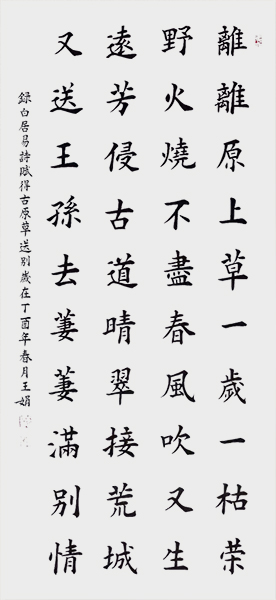 離離原上草一歲一枯荣
野火燒不盡春風吹又生
遠芳侵古道晴翠接荒城
又送王孫去萋萋滿别情
録白居易詩賦得古原草送别歲在丁酉年春月王娟